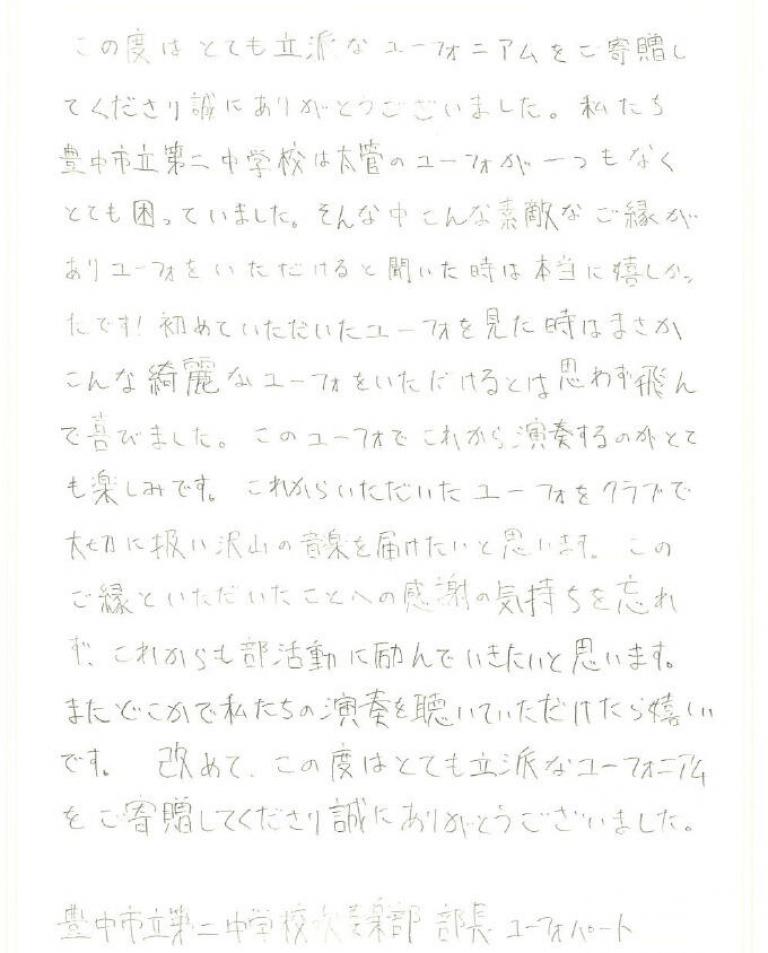 この度はとても立派なユーフォニアムをご寄贈し
てくださり誠にありがとうございました。私たち
豊中市立第二中学校は太管のユーフォが一つもなく
とても困っていました。そんな中こんな素敵なご縁が
ありユーフォをいただけると聞いた時は本当に嬉しかっ
たです!初めていただいたユーフォを見た時はまさか
こんな綺麗なユーフォをいただけるとは思わず飛ん
で喜びました。このユーフォでこれから演奏するのがとて
も楽しみです。これからいただいたユーフォをクラブで
大切に扱い沢山の音楽を届けたいと思います。この
ご縁といただいたことへの感謝の気持ちを忘れ
ず、これからも部活動に励んでいきたいと思います。
またどこかで私たちの演奏を聴いていただけたら嬉しい
です。 改めて、この度はとても立派なユーフォニアム
をご寄贈してくださり誠にありがとうございました。
豊中市立第二中学校吹奏楽部 部長 ユーフォパート